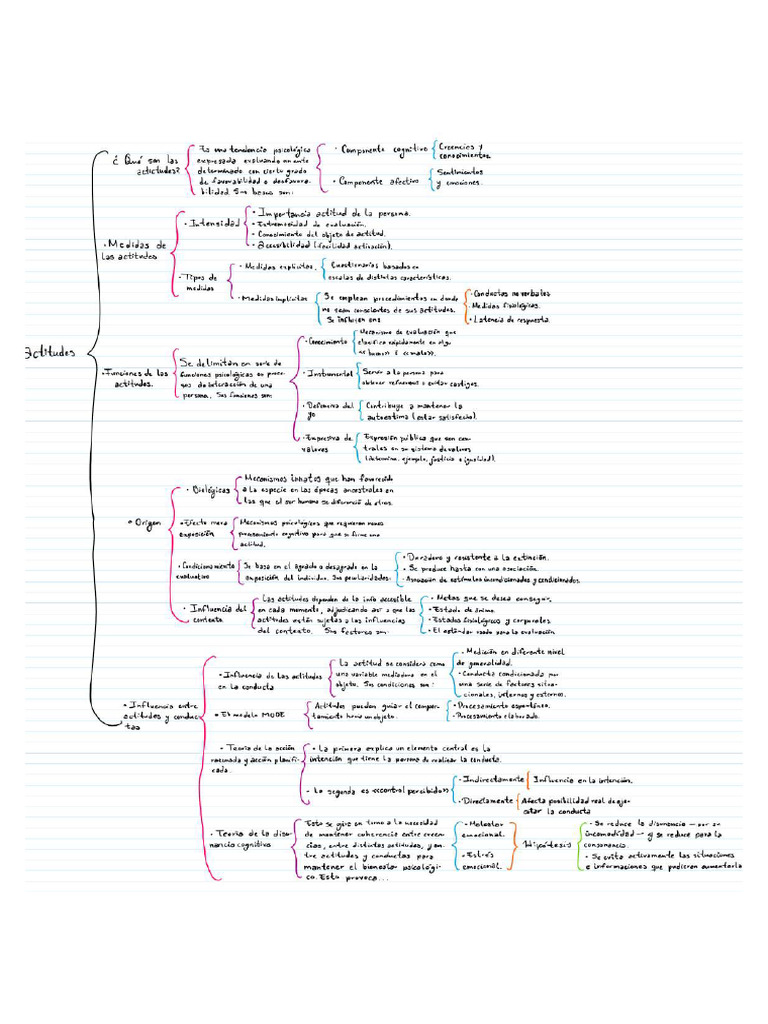 Actitudes
¿Qué son las
actitudes?
Es una tendencia psicológica
expresada evaluando un ente
determinado con cierto grado
de favorabilidad o desfavora-
bilidad. Sus bases son:
• Componente cognitivo
Creencias y
conocimientos.
• Componente afectivo
Sentimientos
y emociones.
• Medidas de
las actitudes
• Intensidad
• Importancia actitud de la persona.
• Extremosidad de evaluación.
• Conocimiento del objeto de actitud.
• Accesibilidad (facilidad activación).
• Tipos de
medidas
• Medidas explícitas.
Cuestionarios basados en
escalas de distintas características.
• Medidas implícitas
Se emplean procedimientos en donde
no sean conscientes de sus actitudes.
Se influyen en:
• Conductas no verbales
• Medidas fisiológicas.
• Latencia de respuesta.
• Funciones de las
actitudes.
Se delimitan en serie de
funciones psicológicas en proce-
sos de interacción de una
persona. Sus funciones son:
• Conocimiento
Mecanismo de evaluación que
clasifica rápidamente en algo
<<bueno>> o <<malo>>.
• Instrumental
Servir a la persona para
obtener refuerzos o evitar castigos.
• Defensiva del
yo
Contribuye a mantener la
autoestima (estar satisfecho).
• Expresiva de
valores
Expresión pública que son cen-
trales en su sistema de valores
(determina, ejemplo, justicia o igualdad).
• Origen
• Biológicas
Mecanismos innatos que han favorecido
a la especie en las épocas ancestrales en
las que el ser humano se diferenció de otros.
• Efecto mera
exposición
Mecanismos psicológicos que requieren menos
procesamiento cognitivo para que se forme una
actitud.
• Condicionamiento
evaluativo
Se basa en el agrado o desagrado en la
exposición del individuo. Sus peculiaridades:
• Duradero y resistente a la extinción.
• Se produce hasta con una asociación.
• Asociación de estímulos incondicionados y condicionados.
• Influencia del
contexto
Las actitudes dependen de la info accesible
en cada momento, adjudicando así a que las
actitudes están sujetas a las influencias
del contexto. Sus factores son:
• Metas que se desea conseguir.
• Estado de ánimo.
• Estados fisiológicos y corporales
• El estándar usado para la evaluación
• Influencia entre
actitudes y conduc-
tas
• Influencia de las actitudes
en la conducta
La actitud se considera como
una variable mediadora en el
objeto. Sus condiciones son:
• Medición en diferente nivel
de generalidad.
• Conducta condicionada por
una serie de factores situa-
cionales, internos y externos.
• El modelo MODE
Actitudes pueden guiar el compor-
tamiento hacia un objeto.
• Procesamiento espontáneo.
• Procesamiento elaborado.
• Teoría de la acción
razonada y acción planifi-
cada.
• La primera explica un elemento central es la
intención que tiene la persona de realizar la conducta.
• La segunda es <<control percibido>>
• Indirectamente
Influencia en la intención.
• Directamente
Afecta posibilidad real de eje-
cutar la conducta
• Teoría de la diso-
nancia cognitiva
Esta se gira en torno a la necesidad
de mantener coherencia entre creen-
cias, entre distintas actitudes, y en-
tre actitudes y conductas para
mantener el bienestar psicológi-
co. Esto provoca...
• Malestar
emocional.
• Estrés
emocional.
Hipótesis
• Se reduce la disonancia — por su
incomodidad — y se reduce para la
consonancia.
• Se evita activamente las situaciones
e informaciones que pudieran aumentarla